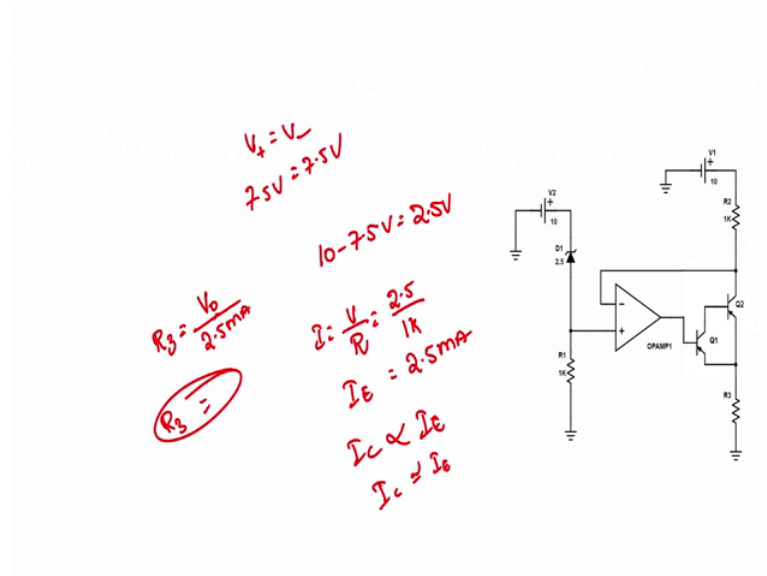 V+ = V-
7.5V = 7.5V
10-7.5V = 2.5V
R3 = V0/2.5mA
I = V/R = 2.5/1K
IE = 2.5mA
R3 =
IC ∝ IE
IC ≃ IE
V1
+
10
R2
1K
V2
+
10
D1
2.5
-
+
OPAMP1
Q2
Q1
R1
1K
R3